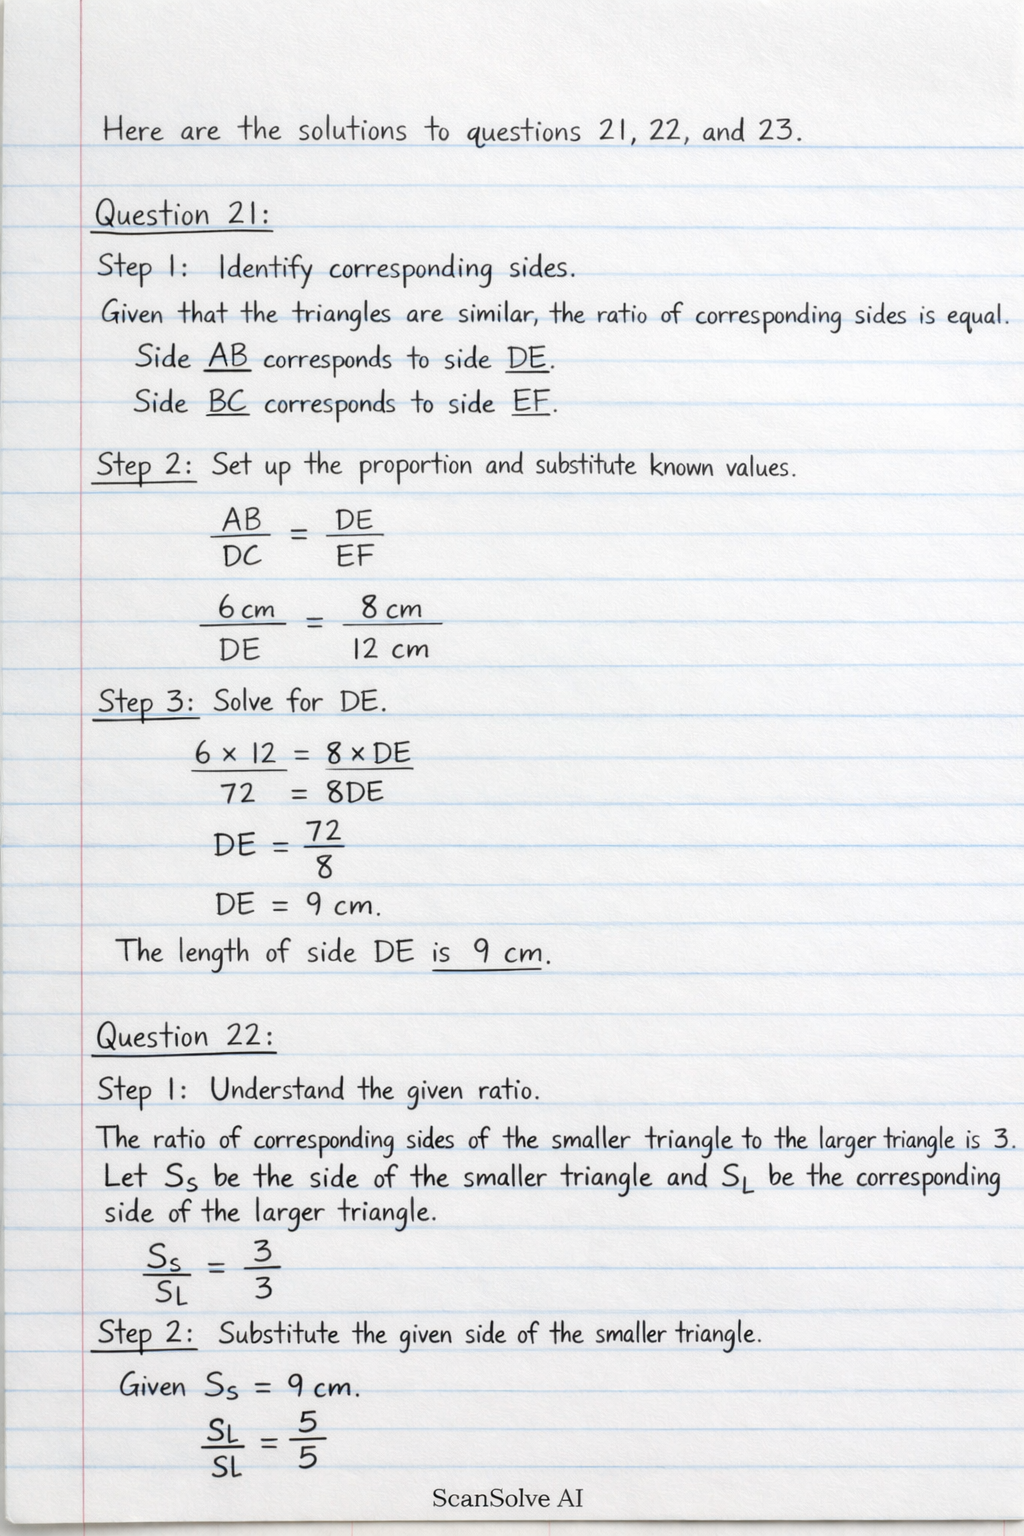 Here are the solutions to questions 21, 22, and 23.
Question 21:
Step 1: Identify corresponding sides.
Given that the triangles are similar, the ratio of corresponding sides is equal.
Side AB corresponds to side DE.
Side BC corresponds to side EF.
Step 2: Set up the proportion and substitute known values.
AB/DC = DE/EF
6 cm/DE = 8 cm/12 cm
Step 3: Solve for DE.
6 × 12 = 8 × DE
72 = 8DE
DE = 72/8
DE = 9 cm.
The length of side DE is 9 cm.
Question 22:
Step 1: Understand the given ratio.
The ratio of corresponding sides of the smaller triangle to the larger triangle is 3.
Let Ss be the side of the smaller triangle and SL be the corresponding
side of the larger triangle.
Ss/SL = 3/3
Step 2: Substitute the given side of the smaller triangle.
Given Ss = 9 cm.
SL/SL = 5/5
ScanSolve AI